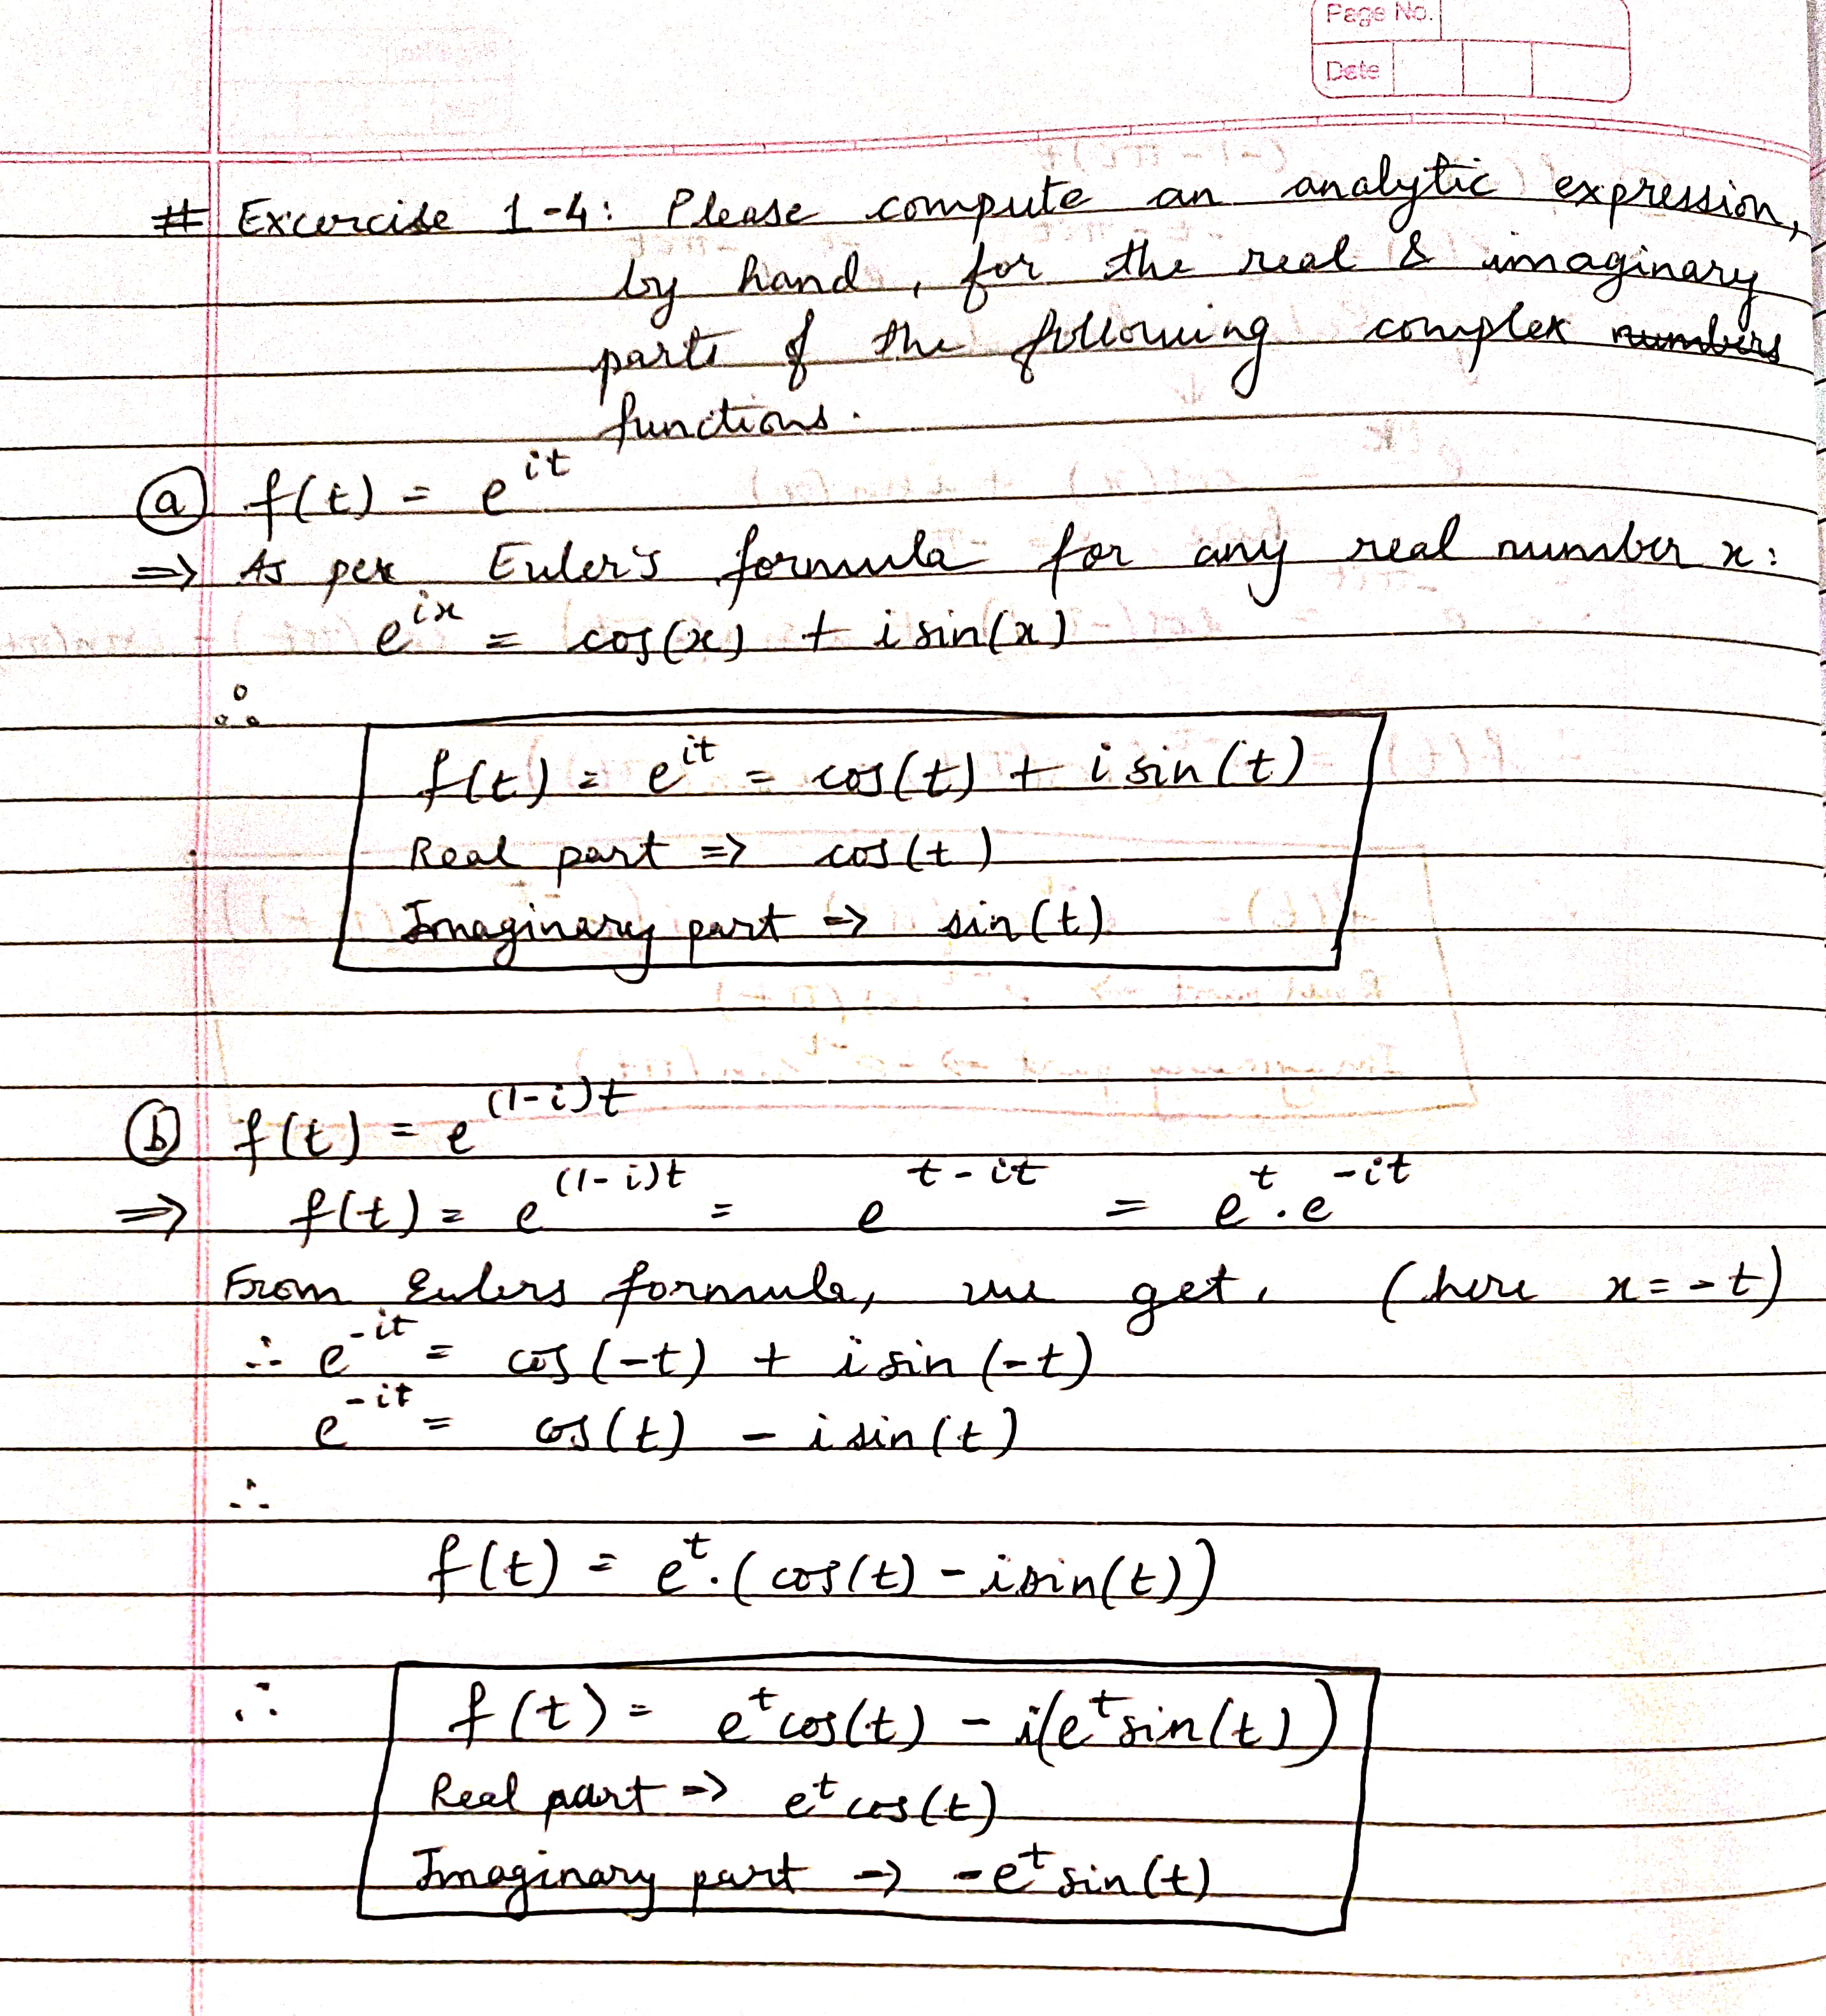 Page No.
Date
# Excercise 1-4: Please compute an analytic expression,
by hand, for the real & imaginary
parts of the following complex numbers
functions.
(a) f(t) = e^{it}
=> As per Euler's formula for any real number x:
e^{ix} = cos(x) + i sin(x)
∴
f(t) = e^{it} = cos(t) + i sin(t)
Real part => cos(t)
Imaginary part => sin(t)
(b) f(t) = e^{(1-i)t}
=> f(t) = e^{(1-i)t} = e^{t-it} = e^{t}.e^{-it}
From Eulers formula, we get, (here x=-t)
∴ e^{-it} = cos(-t) + i sin(-t)
e^{-it} = cos(t) - i sin(t)
∴
f(t) = e^{t}.(cos(t) - i sin(t))
∴ f(t) = e^{t} cos(t) - i(e^{t} sin(t))
Real part => e^{t} cos(t)
Imaginary part -> -e^{t} sin(t)